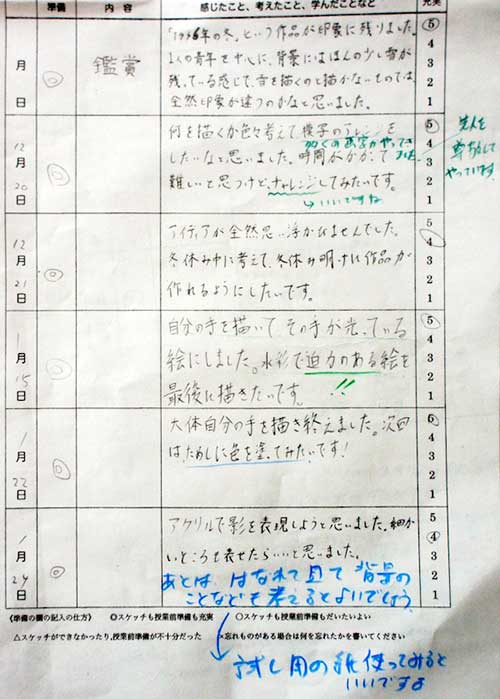 準備 内容 感じたこと、考えたこと、学んだことなど 充実
月 日 ◎ 鑑賞
「1946年の冬」という作品が印象に残りました。
1人の青年を中心に、背景にはほんの少し雪が
残っている感じで、雪を描くのと描かないものでは、
全然印象が違うのかなと思いました。
5 4 3 2 1
12月20日 ◎
何を描くか色々考えて模写のアレンジを
したいなと思いました。時間がかかって
多くの画家がやってきました
難しいと思うけど、チャレンジしてみたいです。
→いいですね
5 4 3 2 1
先人を
尊敬して
やっています
12月21日 ◎
アイディアが全然思い浮かびませんでした。
冬休み中に考えて、冬休み明けに作品が
作れるようにしたいです。
5 4 3 2 1
1月15日 ◎
自分の手を描いて、その手が光っている
絵にしました。水彩で迫力のある絵を
最後に描きたいです。
!!
5 4 3 2 1
1月22日 ◎
大体自分の手を描き終えました。次回
は、ためしに色を塗ってみたいです!
5 4 3 2 1
1月29日 ◎
アクリルで影を表現しようと思いました。細か
いところも表せたらいいと思いました。
あとは、はなれて見て背景の
ことなども考えるとよいでしょう
5 4 3 2 1
〈準備の欄の記入の仕方〉 ◎スケッチも授業前準備も充実 ○スケッチも授業前準備もだいたいよい
△スケッチができなかったり、授業前準備が不十分だった ×忘れものがある場合は何を忘れたかを書いてください
試し用の紙使ってみると
いいですよ